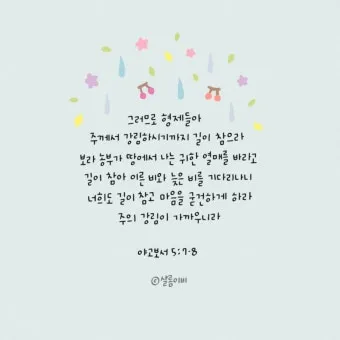 그러므로 형제들아
주께서 강림하시기까지 길이 참으라
보라 농부가 땅에서 나는 귀한 열매를 바라고
길이 참아 이른 비와 늦은 비를 기다리나니
너희도 길이 참고 마음을 굳건하게 하라
주의 강림이 가까우니라
야고보서 5:7-8
©샬롬이바